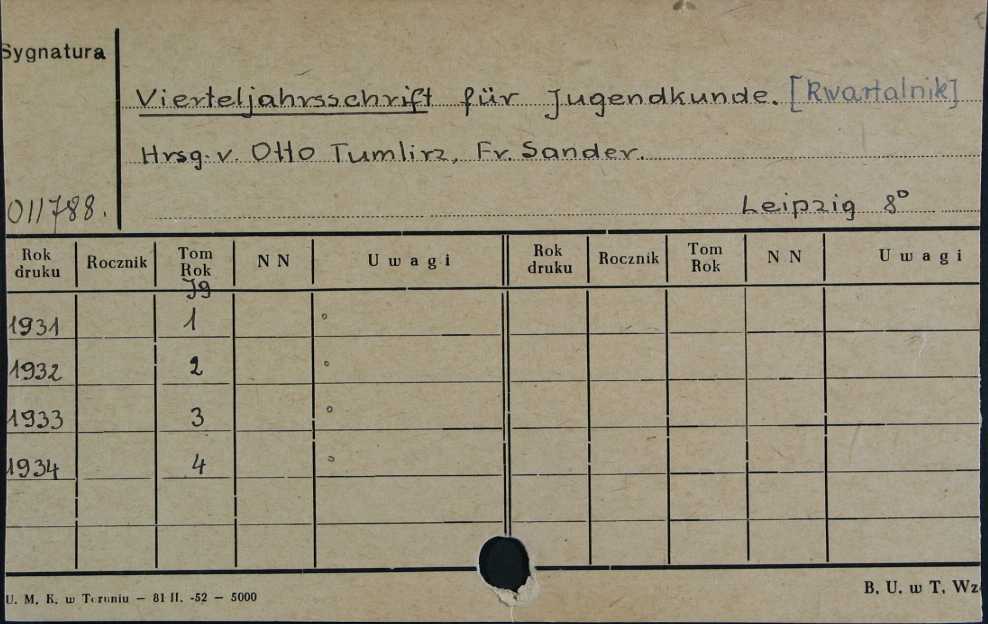 Sygnatura
Vierteljahrsschrift für Jugendkunde. [Kwartalnik]
Hrsg. v. Otto Tumlirz, Fr. Sander.
011788.
Leipzig 8°
Rok druku Rocznik Tom Rok NN Uwagi Rok druku Rocznik Tom Rok NN Uwagi
Jg
1931 1 °
1932 2 °
1933 3 °
1934 4 °
U. M. K. w Toruniu — 81 II. -52 — 5000
B. U. w T. Wz